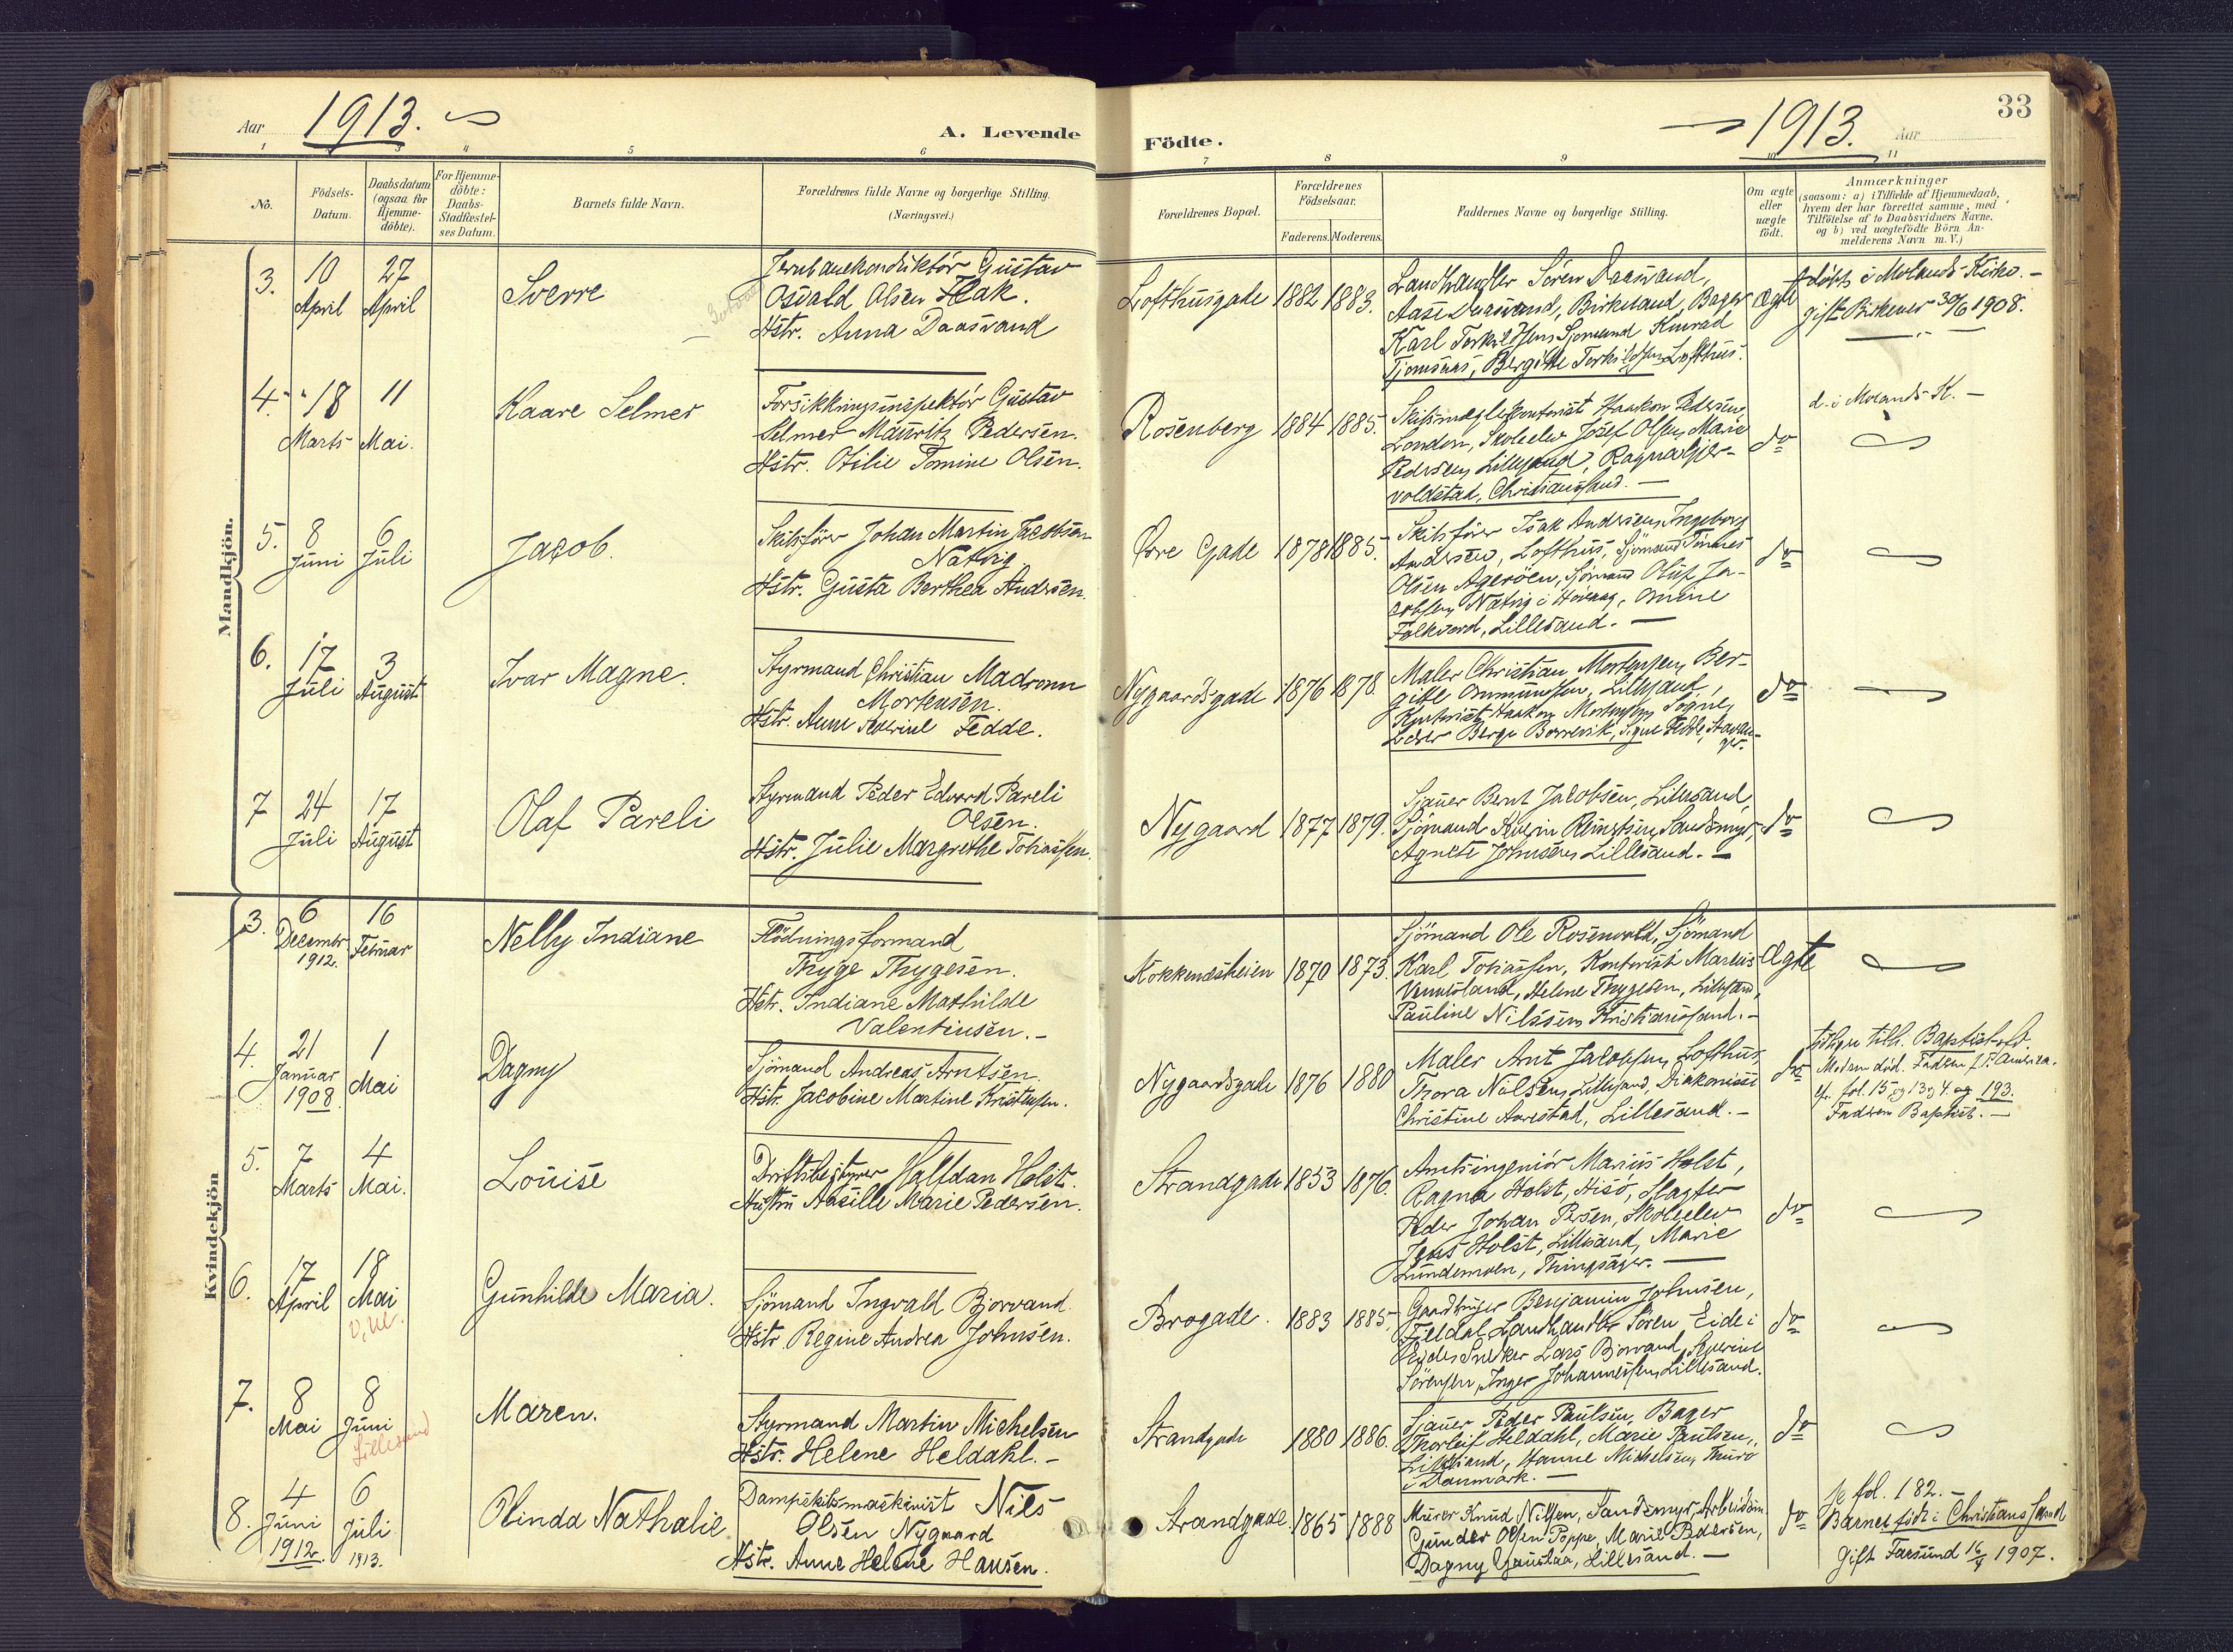 Aar 1913.
A. Levende
Födte.
1913. Aar
33
1 3 4 5 6 7 8 9 10 11
No.
Födsels-
Datum.
Daabsdatum
(ogsaa for
Hjemme-
döbte).
For Hjemme-
döbte:
Daabs-
Stadfæstel-
ses Datum.
Barnets fulde Navn.
Forældrenes fulde Navne og borgerlige Stilling.
(Næringsvei.)
Forældrenes Bopæl.
Forældrenes
Födselsaar.
Faderens. Moderens.
Faddernes Navne og borgerlige Stilling.
Om ægte
eller
uægte
födt.
Anmærkninger
(saasom: a) i Tilfælde af Hjemmedaab,
hvem der har forrettet samme, med
Tilföielse af to Daabsvidners Navne.
og b) ved uægtefödte Börn An-
melderens Navn m. V.)
Mandkjön.
3. 10 April
27 April
Sverre
Jernbanekonduktör Gustav
Osvald Olsen Flak.
Hstr. Anna Daasvand
Lofthusgade 1882 1883.
Landhandler Sören Daasvand,
Aase Daasvand, Birkeland, Bager
Karl Torkildsen, Sjömand Konrad
Tjomsaas, Bergitte Torkildsen, Lofthus.
Ægte
döbt i Molands Kirke. -
gift Birkenes 30/6 1908.
4. 18 Marts
11 Mai.
Kaare Selmer
Forsikkringsinspektör Gustav
Selmer Mauritz Pedersen.
Hstr. Otilie Tomine Olsen.
Rosenberg 1884 1885.
Skibsmæglerkontorist Haakon Pedersen,
London, Skoleelev Josef Olsen, Marie
Pedersen, Lillesand, Ragna Gjer-
voldstad, Christianssand. -
do
d. i Molands K. -
5. 8 Juni
6 Juli
Jacob.
Skibsförer Johan Martin Jacobsen
Natvig
Hstr. Gusta Berthea Andersen.
Övre Gade 1878 1885.
Skibsförer Isak Andersen, Ingeborg
Andersen, Lofthus, Sjömand Tönnes
Olsen Ageröen, Sjömand Oluf Ja-
cobsen, Natvig i Hövaag,
Falkvard, Lillesand. -
do
6. 17 Juli
3 August
Ivar Magne.
Styrmand Christian Madronn
Mortensen.
Hstr. Anne Severine Fedde.
Nygaardsgade 1876 1878
Maler Christian Mortensen, Ber-
gitte Gunmundsen, Lillesand,
Kontorist Haakon Mortensen, Sogne,
Berge Borrevik, Signe Fedde, Stavan-
ger.
do
7 24 Juli
17 August
Olaf Pareli
Styrmand Peder Edvard Pareli
Olsen.
Hstr. Julie Margrethe Tobiassen.
Nygaard 1877 1879.
Sjauer Bernt Jacobsen, Lillesand,
Sjömand Severin Reinertsen, Sandsmyr,
Agnete Johnsen, Lillesand. -
do
Kvindekjön
3. 6 Decembr 1912.
16 Februar
Nelly Indiane
Flödningsformand
Thyge Thygesen.
Hstr. Indiane Mathilde
Valentinsen. -
Kokkenesheien 1870 1873.
Sjömand Ole Rosenvold, Sjömand
Karl Tobiassen, Kontorist Marius
Vennesland, Helene Thygesen, Lillesand,
Pauline Nilssen, Kristianssand. -
Ægte
4. 21 Januar 1908.
1 Mai
Dagny
Sjömand Andreas Arntsen.
Hstr. Jacobine Martine Kristensen.
Nygaardsgade 1876 1880
Maler Arnt Jacobsen, Lofthus,
Thora Nilsen, Lillesand, Diakonisse
Christine Aarestad, Lillesand. -
do
tidligere tilh. Baptist
Moderen död. Faderen f. T. Amerika.
cfr. fol. 15, og 13, 4 og 193.
Faderen Baptist. -
5. 7 Marts
4 Mai.
Louise
Driftsbestyrer Halfdan Holst.
Hustru Aasille Marie Pedersen.
Strandgade 1853 1876.
Amtsingeniör Marius Holst,
Ragna Holst, Hisö, Slagter
Peder Johan Persen, Skoleelev
Jens Holst, Lillesand, Marie
Lundemoen, Tningsager. -
do
6. 17 April
18 Mai
Gunhilde Maria.
Sjömand Ingvald Bjorvand.
Hstr Regine Andrea Johnsen.
Brogade. 1883 1885.
Gaardbruger Benjamin Johnsen,
Landhandler Sören Eide i
Eide, Snekker Lars Bjorvand, Severine
Sörensen, Inger Johannessen, Lillesand.
do
7. 8 Mai
8 Juni
Lillesand
Maren.
Styrmand Martin Michelsen
Hstr. Helene Heldahl. -
Strandgade 1880 1886.
Sjauer Peder Paulsen, Bager
Thorleif Heldahl, Marie Paulsen,
Lillesand, Hanne Michelsen, Thurö
i Danmark. -
do
8. 4 Juni 1912.
6 Juli 1913.
Olinda Nathalie
Dampskibsmaskinist Nils
Olsen Nygaard
Hstr. Anne Helene Hansen.
Strandgade 1865 1888
Murer Knud Nilsen, Sandsmyr, Arbeidsm.
Gunder Olsen Poppe, Marie Pedersen,
Dagny Lillesand. -
do
se fol. 182. -
Barnet födt i Christianssand
Gift Farsund 16/9 1907.